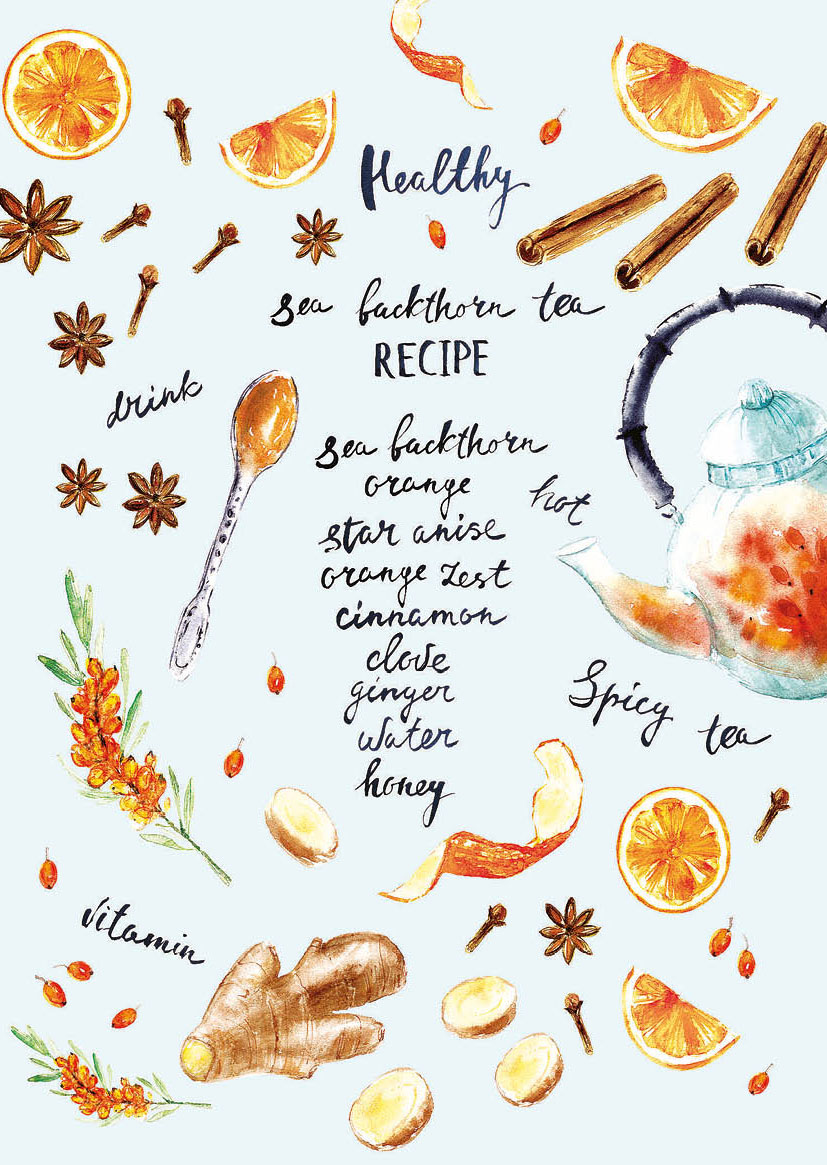 Healthy
sea backthorn tea
RECIPE
drink
sea backthorn
orange
hot
star anise
orange zest
cinnamon
clove
ginger
Spicy tea
water
honey
vitamin